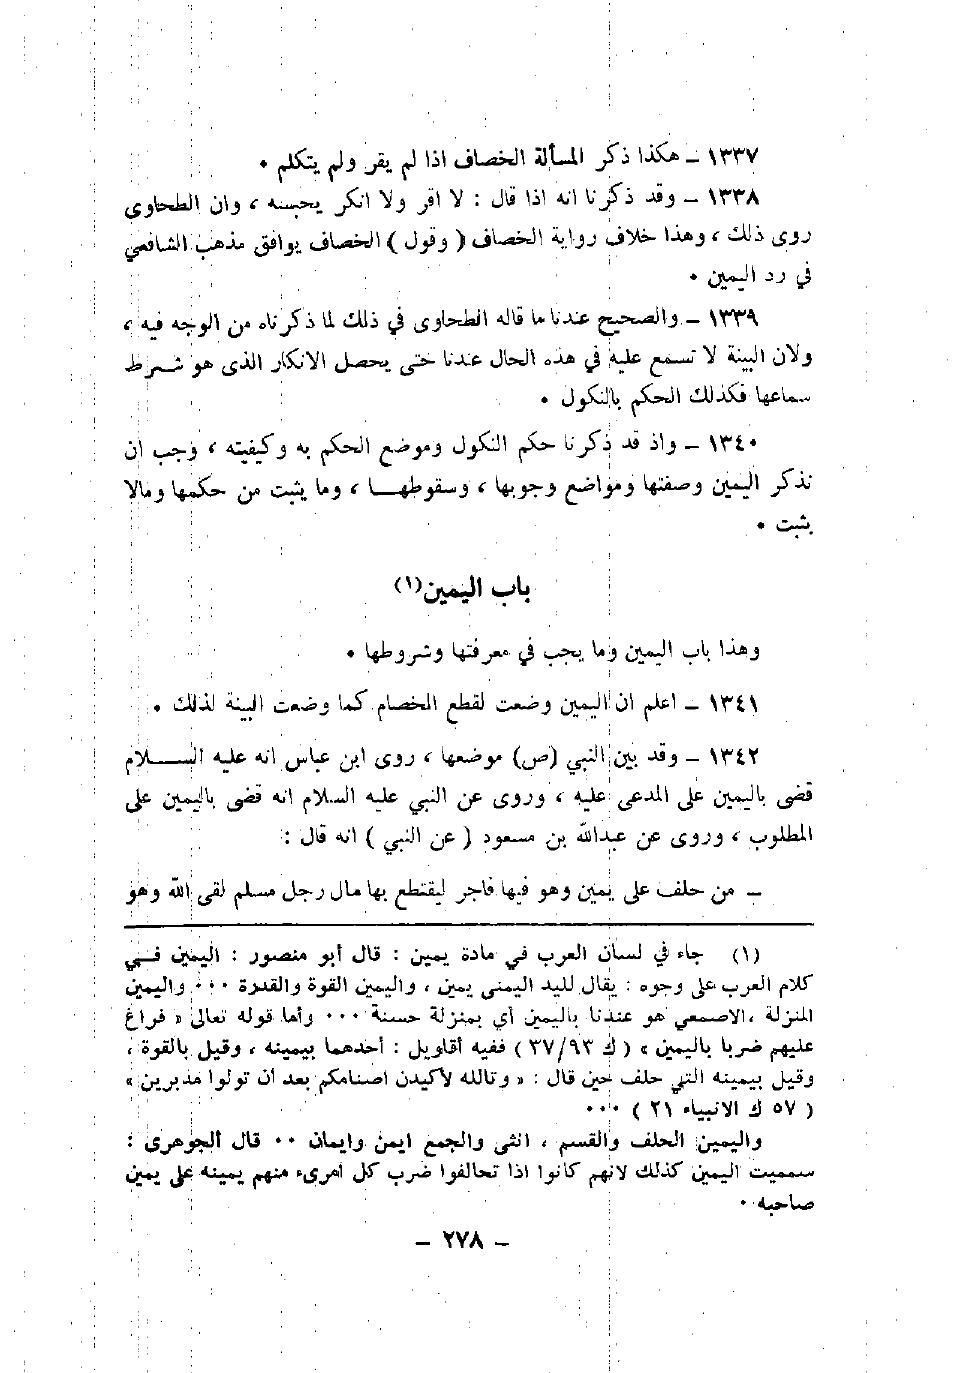 ١٣٣٧ – هكذا ذكر المسألة الخصاف اذا لم يقر ولم يتكلم ٠
١٣٣٨ – وقد ذكرنا انه اذا قال : لا اقر ولا انكر يحبسه ، وان الطحاوى
روى ذلك ، وهذا خلاف رواية الخصاف ( وقول ) الخصاف يوافق مذهب الشافعي
في رد اليمين ٠
١٣٣٩ – والصحيح عندنا ما قاله الطحاوى في ذلك لما ذكرناه من الوجه فيه ،
ولان البينة لا تسمع عليه في هذه الحال عندنا حتى يحصل الانكار الذى هو شـرط
سماعها فكذلك الحكم بالنكول ٠
١٣٤٠ – واذ قد ذكرنا حكم النكول وموضع الحكم به وكيفيته ، وجب ان
نذكر اليمين وصفتها ومواضع وجوبها ، وسقوطهـــا ، وما يثبت من حكمها ومالا
يثبت ٠
باب اليمين(١)
وهذا باب اليمين وما يجب في معرفتها وشروطها ٠
١٣٤١ – اعلم ان اليمين وضعت لقطع الخصام كما وضعت البينة لذلك ٠
١٣٤٢ – وقد بين النبي (ص) موضعها ، روى ابن عباس انه عليه الســـلام
قضى باليمين على المدعى عليه ، وروى عن النبي عليه السلام انه قضى باليمين على
المطلوب ، وروى عن عبدالله بن مسعود ( عن النبي ) انه قال :
– من حلف على يمين وهو فيها فاجر ليقتطع بها مال رجل مسلم لقى الله وهو
(١) جاء في لسان العرب في مادة يمين : قال أبو منصور : اليمين فـي
كلام العرب على وجوه : يقال لليد اليمنى يمين ، واليمين القوة والقدرة ٠٠٠ واليمين
المنزلة ،الاصمعي هو عندنا باليمين أي بمنزلة حسنة ٠٠٠ وأما قوله تعالى « فراغ
عليهم ضربا باليمين » ( ك ٣٧/٩٣ ) ففيه أقاويل : أحدهما بيمينه ، وقيل بالقوة ،
وقيل بيمينه التي حلف حين قال : « وتالله لأكيدن اصنامكم بعد أن تولوا مدبرين »
( ٥٧ ك الانبياء ٢١ ) ٠٠٠
واليمين الحلف والقسم ، انثى والجمع ايمن وايمان ٠٠ قال الجوهرى :
سميت اليمين كذلك لانهم كانوا اذا تحالفوا ضرب كل أمرىء منهم يمينه على يمين
صاحبه ٠
– ٢٧٨ –